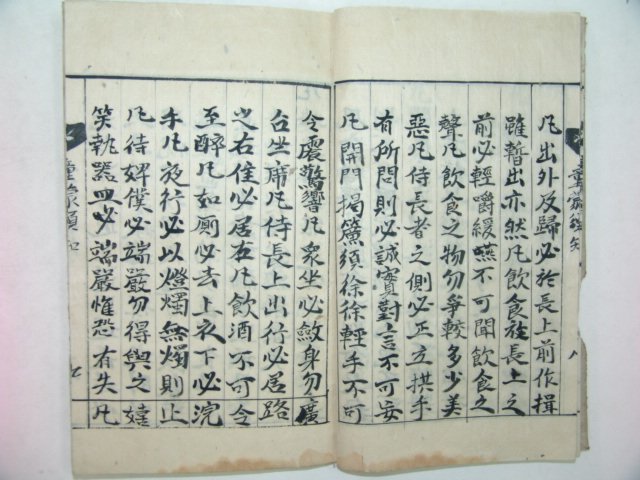 凡出外及歸必於長上前作揖
雖暫出亦然凡飲食於長上之
前必輕嚼緩嚥不可聞飲食之
聲凡飲食之物勿爭較多少美
惡凡侍長者之側必正立拱手
有所問則必誠實對言不可妄
凡開門揭簾須徐徐輕手不可
令震驚響凡衆坐必斂身勿廣
占坐席凡侍長上出行必居路
之右住必居左凡飲酒不可令
至醉凡如厠必去上衣下必浣
手凡夜行必以燈燭無燭則止
凡待婢僕必端嚴勿得與之嬉
笑執器皿必端嚴惟恐有失凡
童蒙須知